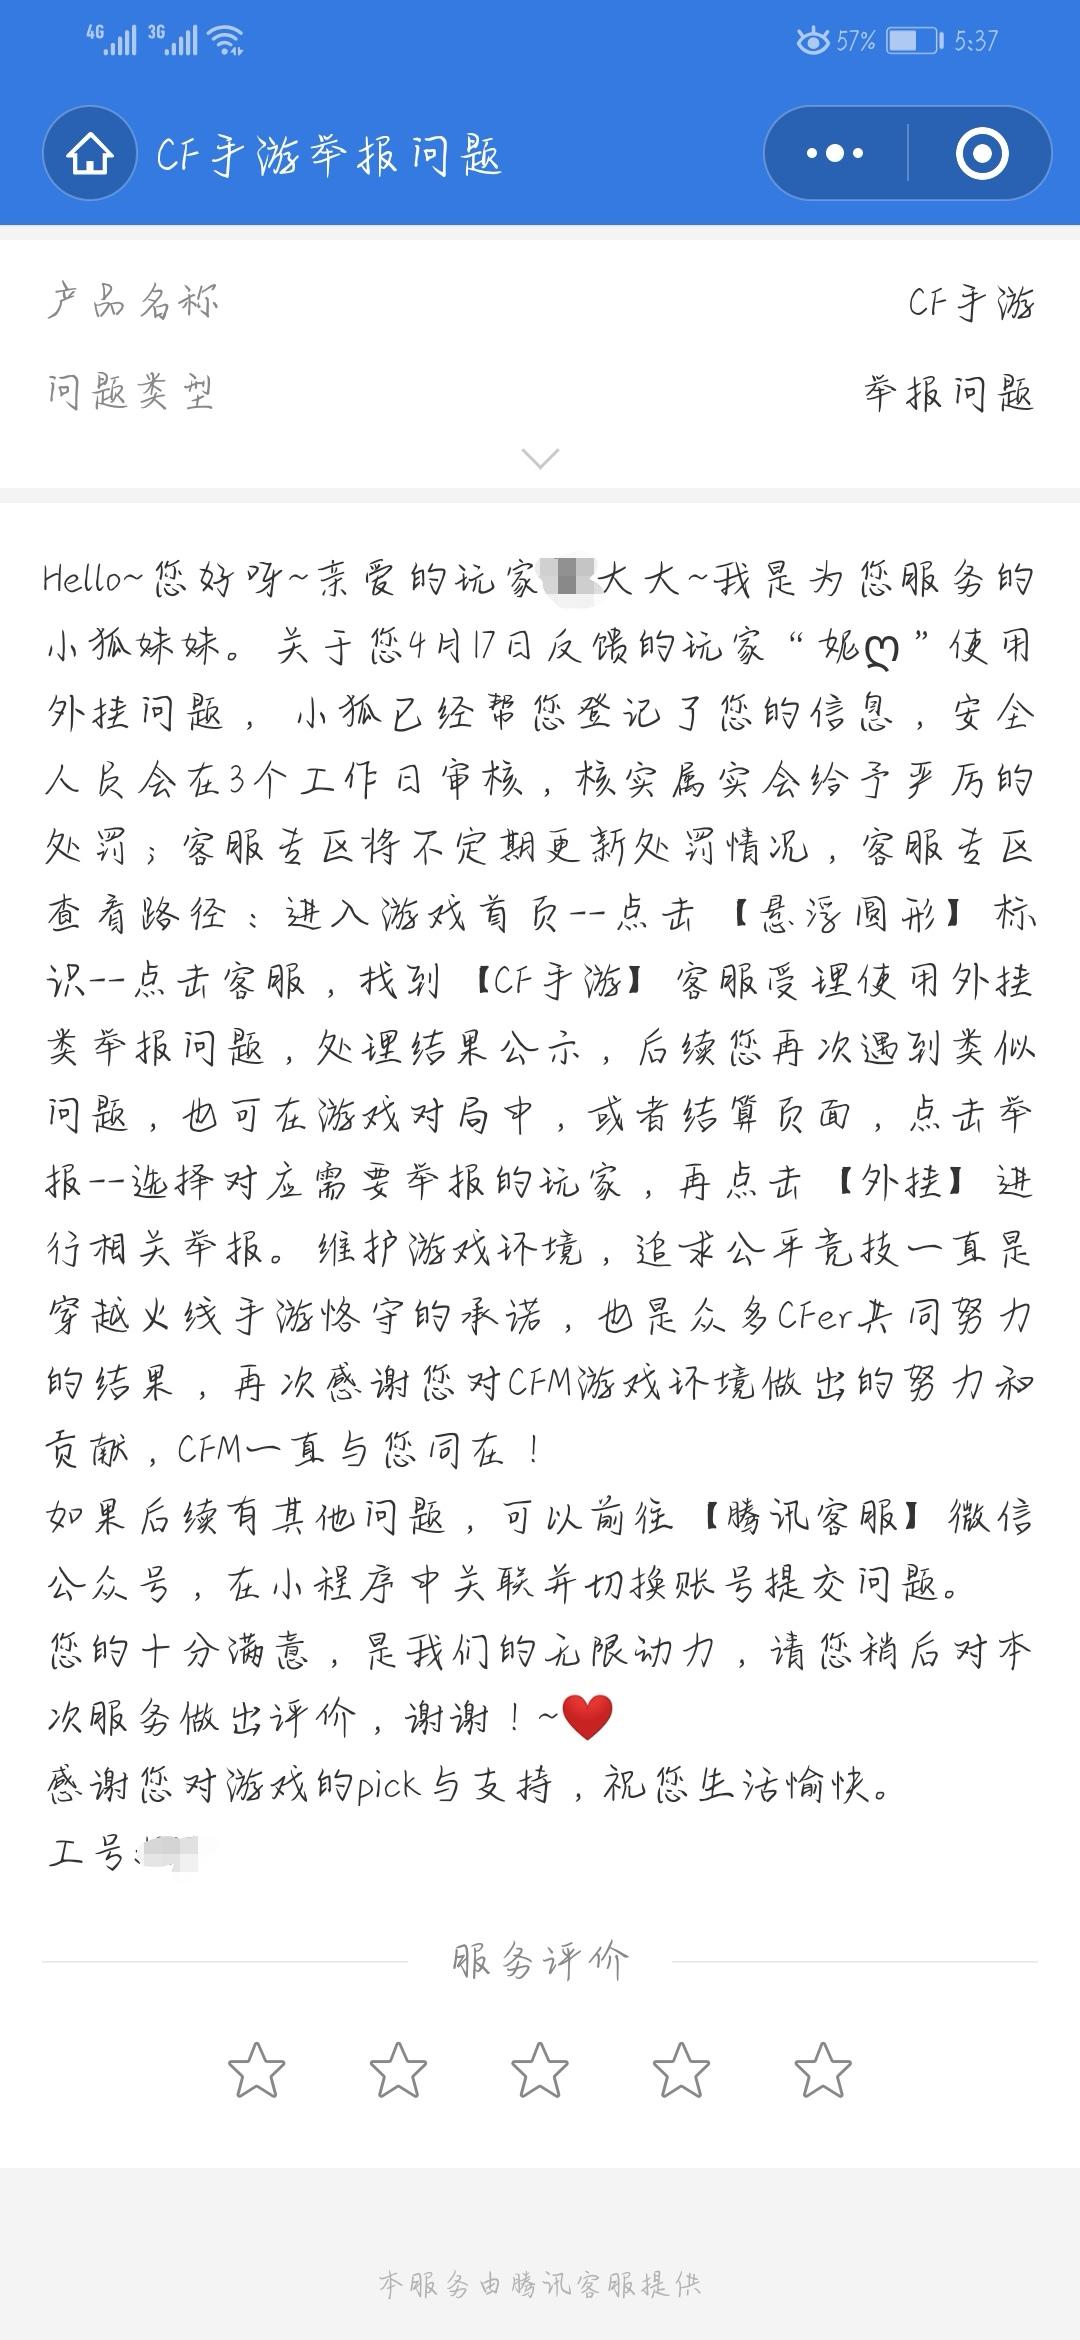 4G 3G 57% 5:37
CF手游举报问题
产品名称 CF手游
问题类型 举报问题
Hello~您好呀~亲爱的玩家大大~我是为您服务的
小狐妹妹。关于您4月17日反馈的玩家“妮ღ”使用
外挂问题，小狐已经帮您登记了您的信息，安全
人员会在3个工作日审核，核实属实会给予严厉的
处罚；客服专区将不定期更新处罚情况，客服专区
查看路径：进入游戏首页--点击【悬浮圆形】标
识--点击客服，找到【CF手游】客服受理使用外挂
类举报问题，处理结果公示，后续您再次遇到类似
问题，也可在游戏对局中，或者结算页面，点击举
报--选择对应需要举报的玩家，再点击【外挂】进
行相关举报。维护游戏环境，追求公平竞技一直是
穿越火线手游恪守的承诺，也是众多CFer共同努力
的结果，再次感谢您对CFM游戏环境做出的努力和
贡献，CFM一直与您同在！
如果后续有其他问题，可以前往【腾讯客服】微信
公众号，在小程序中关联并切换账号提交问题。
您的十分满意，是我们的无限动力，请您稍后对本
次服务做出评价，谢谢！~❤️
感谢您对游戏的pick与支持，祝您生活愉快。
工号:
服务评价
本服务由腾讯客服提供